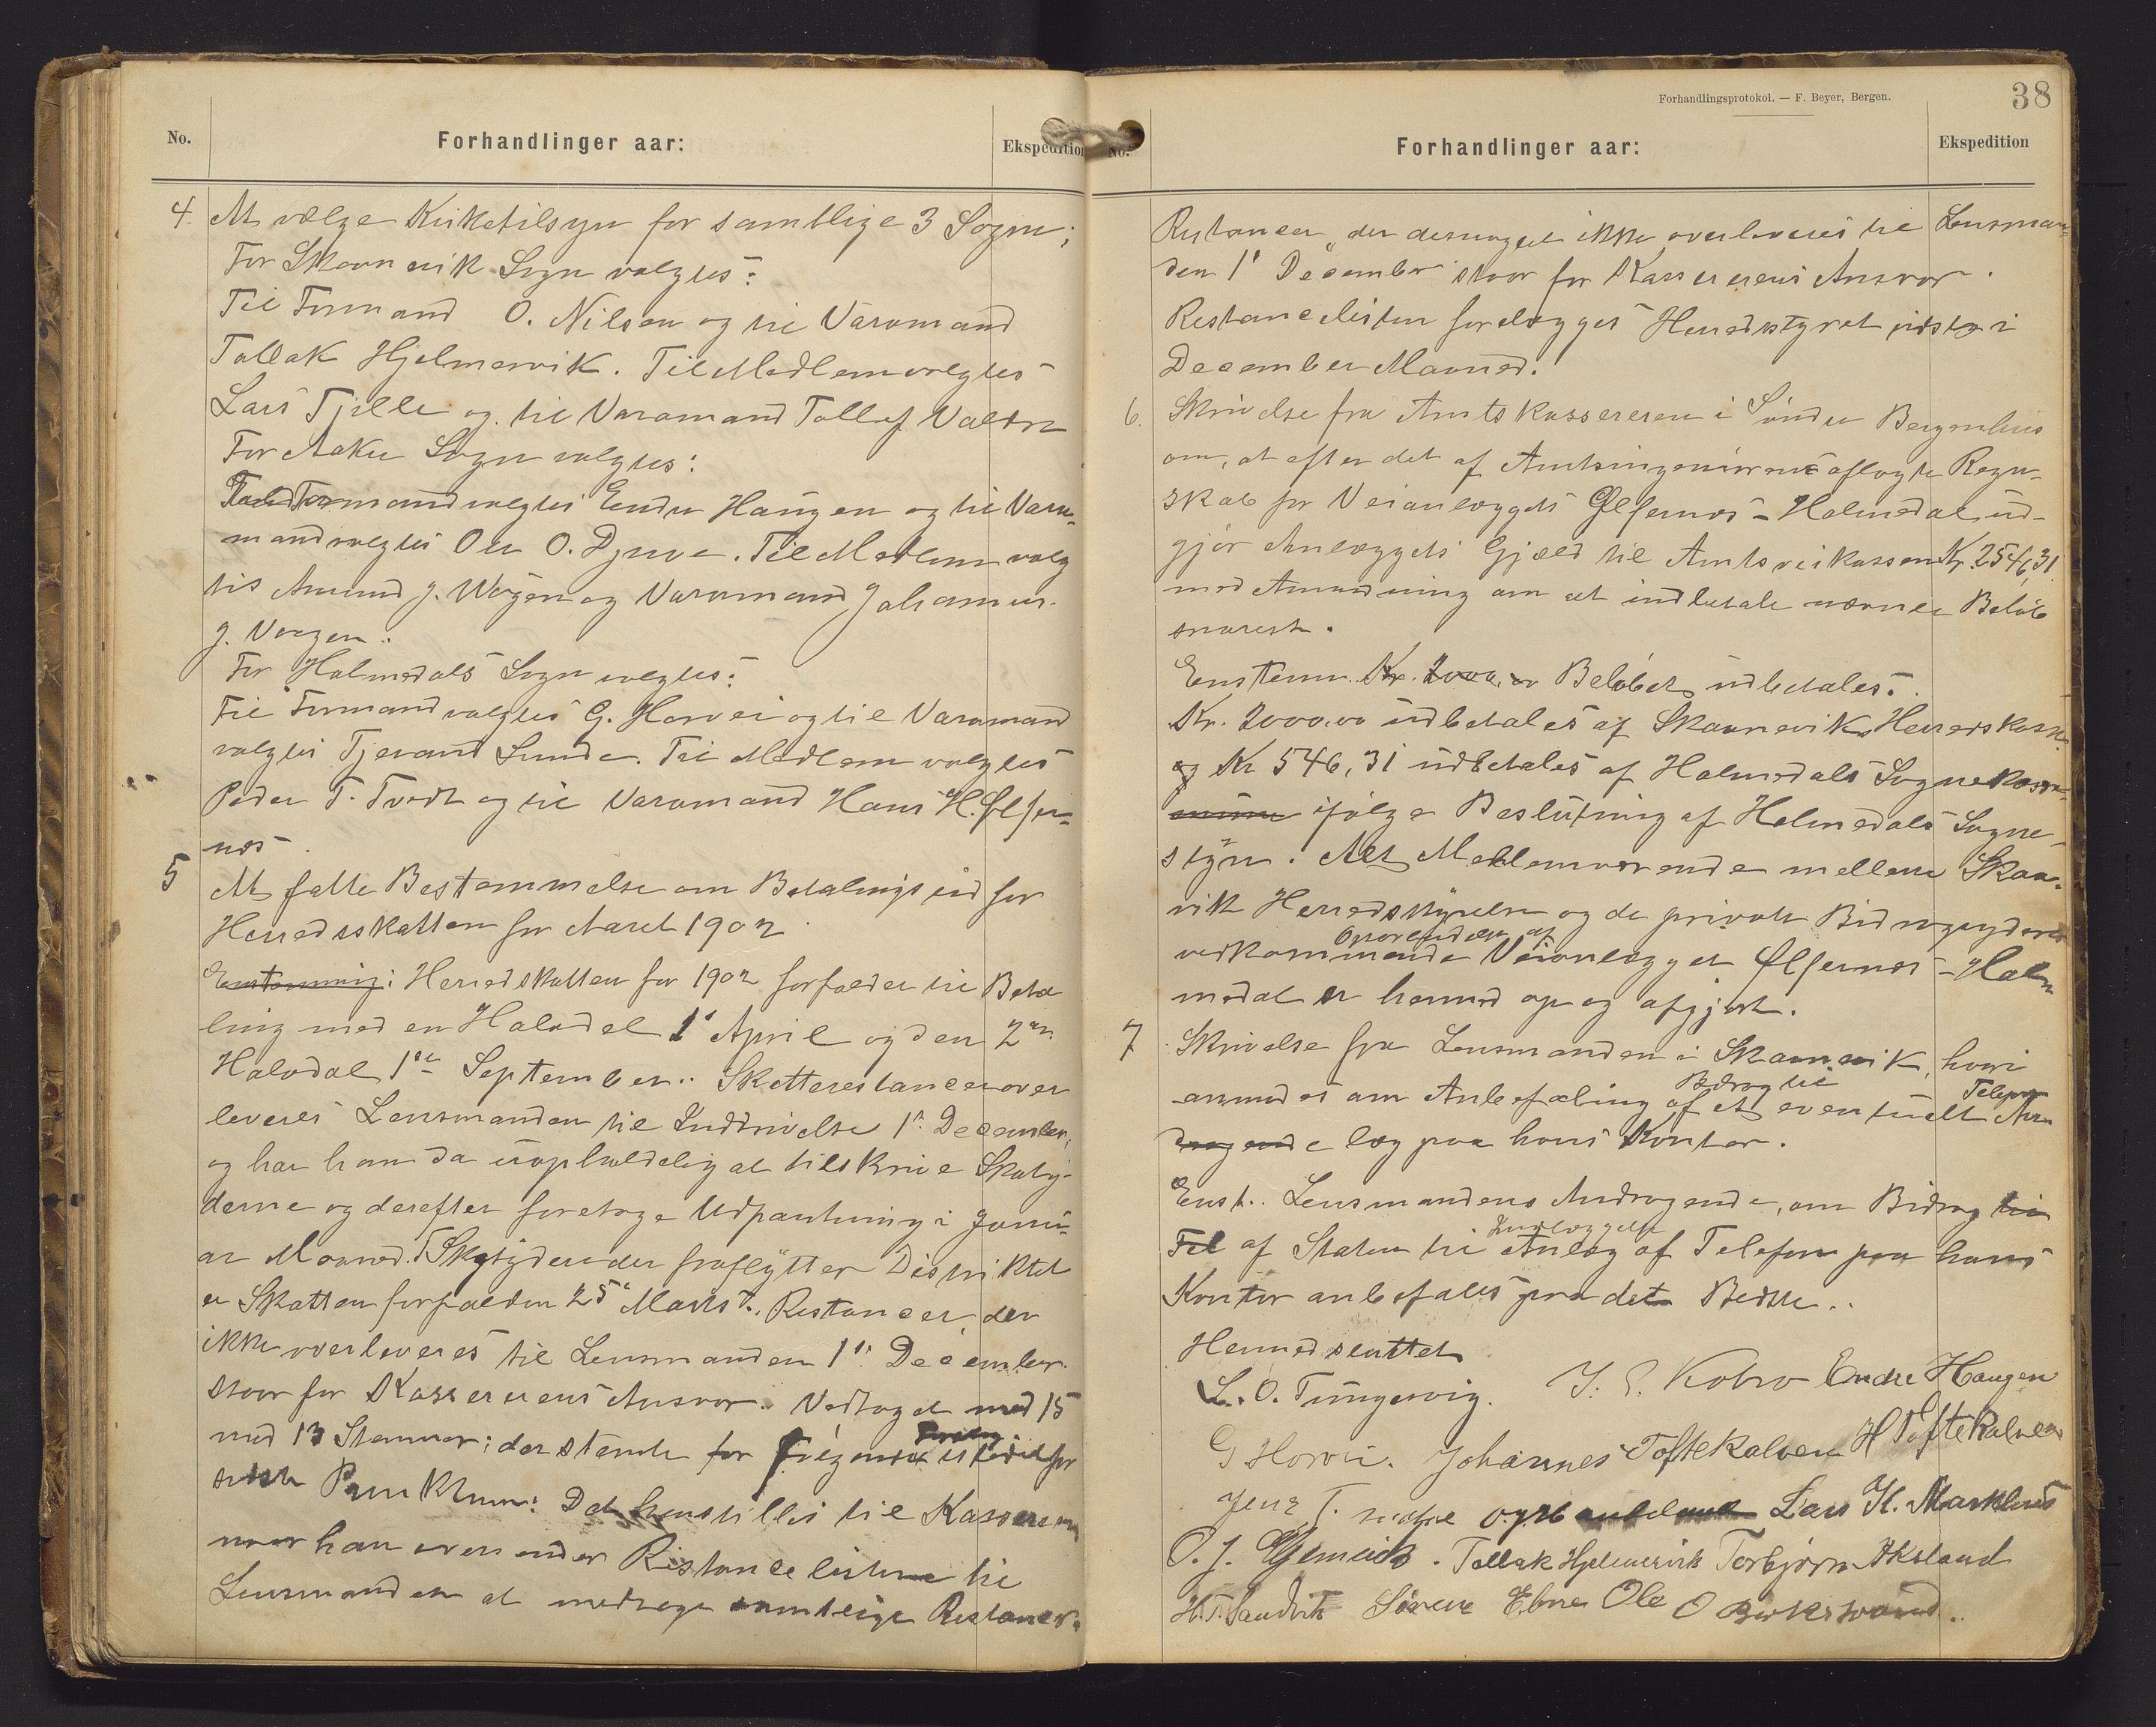 No.
Forhandlinger aar:
Ekspedition
4. At vælge Kirketilsyn for samtlige 3 Sogne;
For Skaanevik Sogn valgtes:
Til Formand O. Nilsen og til Varamand
Tallak Hjelmervik. Til Medlem valgtes
Lars Tjelle og til Varamand Tollef Valen
For Aakre Sogn valgtes:
Til Formand valgtes Endre Haugen og til Vara-
mand valgtes Ole O. Djuve. Til Medlem valg
tes Amund J. Vaagen og Varamand Johannes
J. Vaagen.
For Holmedals Sogn valgtes:
Til Formand valgtes G. Horvei og til Varamand
valgtes Tjerand Sunde. Til Medlem valgtes
Peder T. Tvedt og til Varamand Hans H. Ølfer-
næs.
5 At fatte Bestemmelse om Betalingstid for
Herredsskatten for Aaret 1902.
Enstemmig: Herredskatten for 1902 forfalder til Beta
ling med en Halvdel 1ste April og den 2den
Halvdel 1ste September. Skatterestancer over
leveres Lensmanden til Inddrivelse 1ste December,
og har han da uopholdelig at tilskrive Skaty-
derne og derefter foretage Udpantning i Janu-
ar Maaned. Skatydere der fraflytter Distriktet
er Skatten forfalden 25de Marts. Restancer, der
ikke overleveres til Lensmanden 1ste December
staar for Kassererens Ansvar. Vedtaget med 15
mod 13 Stemmer; der stemte for
sidste Punktum: Det henstilles til Kassereren
naar han oversender Restancelisten til
Lensmanden at medtage samtlige Restancer.
Forhandlingsprotokol. — F. Beyer, Bergen.
38
No.
Forhandlinger aar:
Ekspedition
Restancer, der desuagtet ikke overleveres til Lensman-
den 1ste December staar for Kassererens Ansvar.
Restancelisten forelægges Herredsstyret sidst i
December Maaned.
6. Skrivelse fra Amtskassereren i Søndre Bergenhus
om, at efter det af Amtsingeniøren aflagte Regn-
skab for Veianlægget Ølfernæs - Holmedal ud-
gjør Anlæggets Gjæld til Amtsveikassen Kr. 2546,31
med Anmodning om at indbetale nævnte Beløb
snarest.
Enstem. Kr. 2000,00 Beløbet udbetales.
Kr. 2000,00 udbetales af Skaanevik Herredskasse
og Kr 546,31 udbetales af Holmedals Sognekasse
ifølge Beslutning af Holmedals Sogne-
styre. Alt Mellemværende mellem Skaane-
vik Herredsstyrelse og de private Bidragsydere
Oparbeidelse af
vedkommende Veianlægget Ølfernæs - Holm
medal er hermed op og afgjort.
7 Skrivelse fra Lensmanden i Skaanevik, hvori
Bidrag til
Telefon
anmodes om Anbefaling af et eventuelt An
dragende læg paa hans Kontor.
Enst. Lensmandens Andragende, om Bidrag til
Indlæggelse
Tel af Staten til Anlæg af Telefon paa hans
Kontor anbefales paa det Bedste.
Hermed sluttet
L. O. Tungesvig. J. E. Kobro Endre Haugen
G Horvei. Johannes Toftekalven H Toftekalven
Jens T. Lars H. Markhus
O. J. Tallak Hjelmervik Torbjørn Aksland
H. T. Sandvik Søren Ebne Ole O